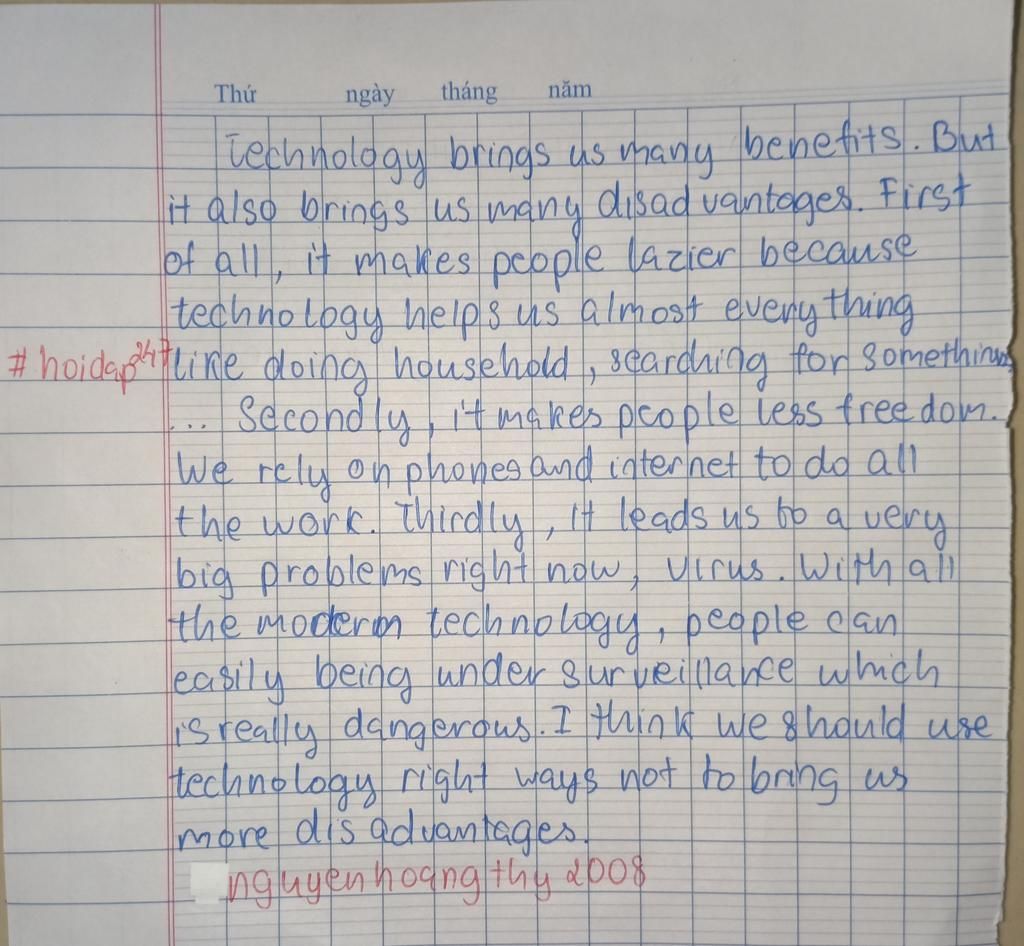 Thứ ngày tháng năm
Technology brings us many benefits. But
it also brings us many disadvantages. First
of all, it makes people lazier because
technology helps us almost everything
#hoidap247 like doing household, searching for something
... Secondly, it makes people less freedom.
We rely on phones and internet to do all
the work. Thirdly, it leads us to a very
big problems right now, virus. With all
the modern technology, people can
easily being under surveillance which
is really dangerous. I think we should use
technology right ways not to bring us
more disadvantages.
nguyenhoangthy2008